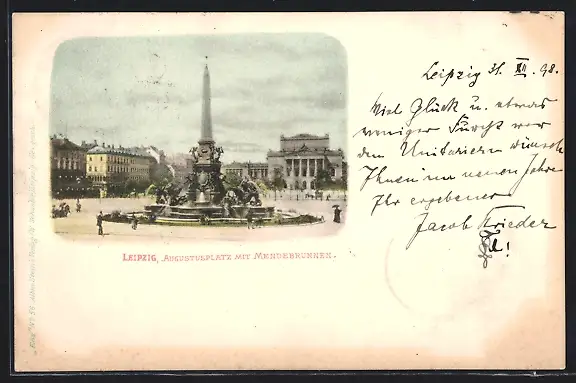 Leipzig 31. XII. 98.
Viel Glück u. etwas
weniger Furcht vor
den Unitariern wünscht
Ihnen im neuen Jahre
Ihr ergebener
Jacob Frieder
LEIPZIG, AUGUSTUSPLATZ MIT MENDEBRUNNEN.